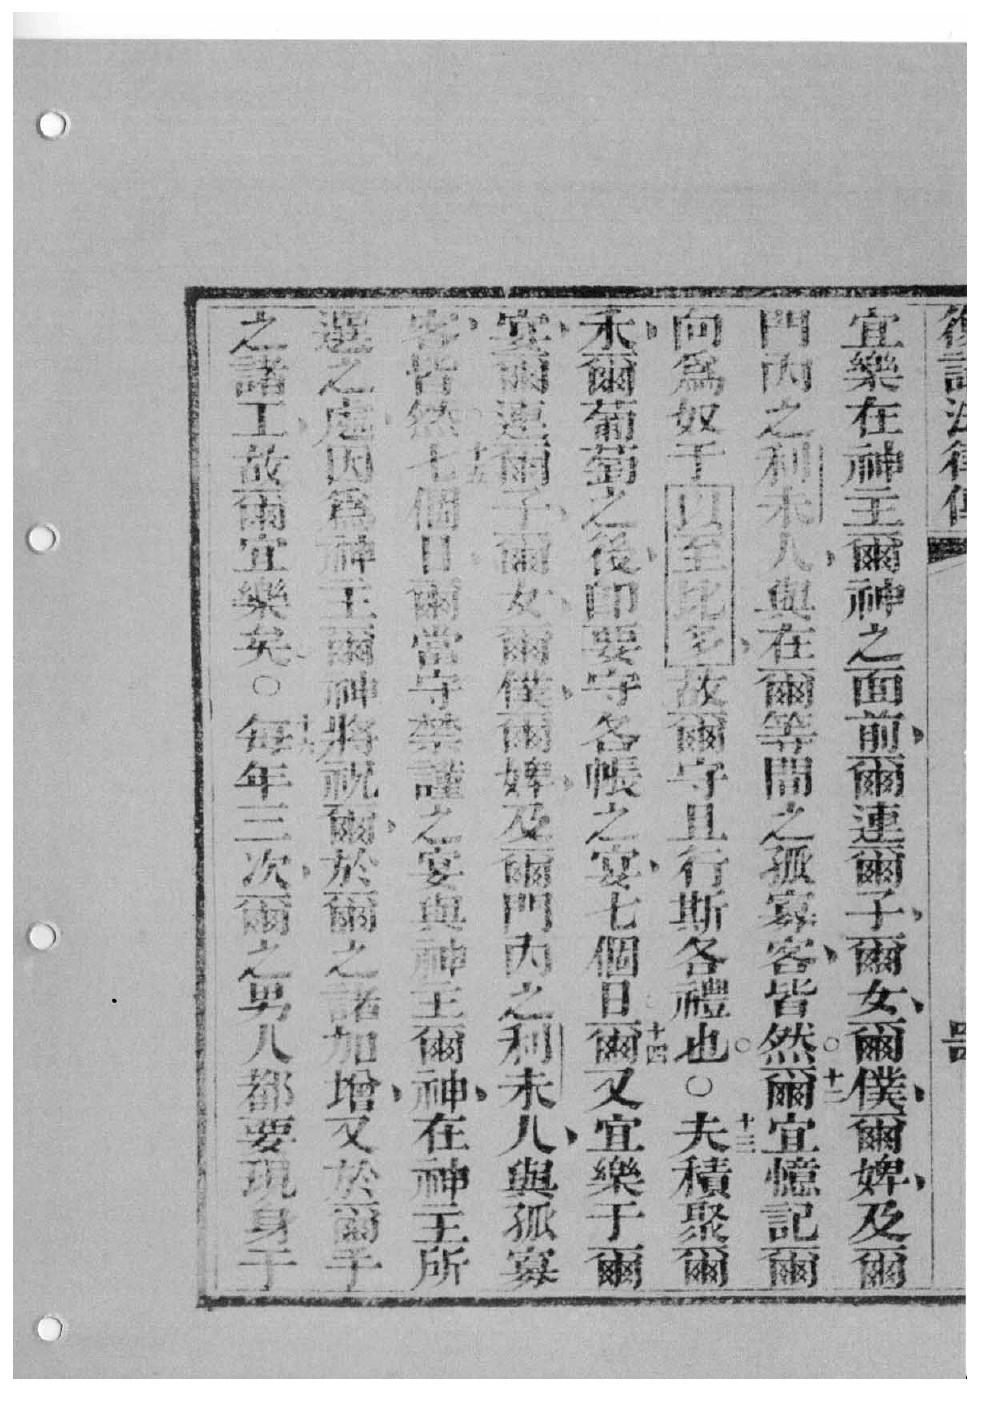 復訂法律傳
宜樂在神主爾神之面前爾連爾子爾女爾僕爾婢及爾
門內之利未人與在爾等間之孤寡客皆然○十二爾宜憶記爾
向為奴于以至比多故爾守且行斯各禮也○○十三夫積聚爾
禾爾葡萄之後即要守各帳之宴七個日十四爾又宜樂于爾
宴爾連爾子爾女爾僕爾婢及爾門內之利未人與孤寡
客皆然○十五七個日爾當守禁謹之宴與神主爾神在神主所
選之處因為神主爾神將祝爾於爾之諸加增又於爾手
之諸工故爾宜樂矣○十六每年三次爾之男人都要現身于